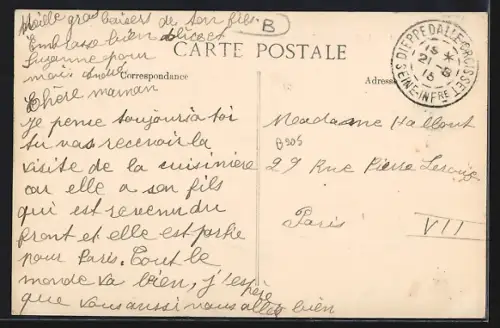 Mille gros baisers de ton fils.
Embrasse bien
Suzanne pour
moi
B
CARTE POSTALE
Correspondance
Adresse
DIEPPEDALLE-CROISSET
15 *
21 - 8
15
SEINE-INFRE
Chère maman
Je pense toujours à toi
tu vas recevoir la
visite de la cuisinière
car elle a son fils
qui est revenu du
front et elle est partie
pour Paris. Tout le
monde va bien, j'espère
que vous aussi vous allez bien
Madame Hallout
B905
29 Rue Pierre
Paris
VII